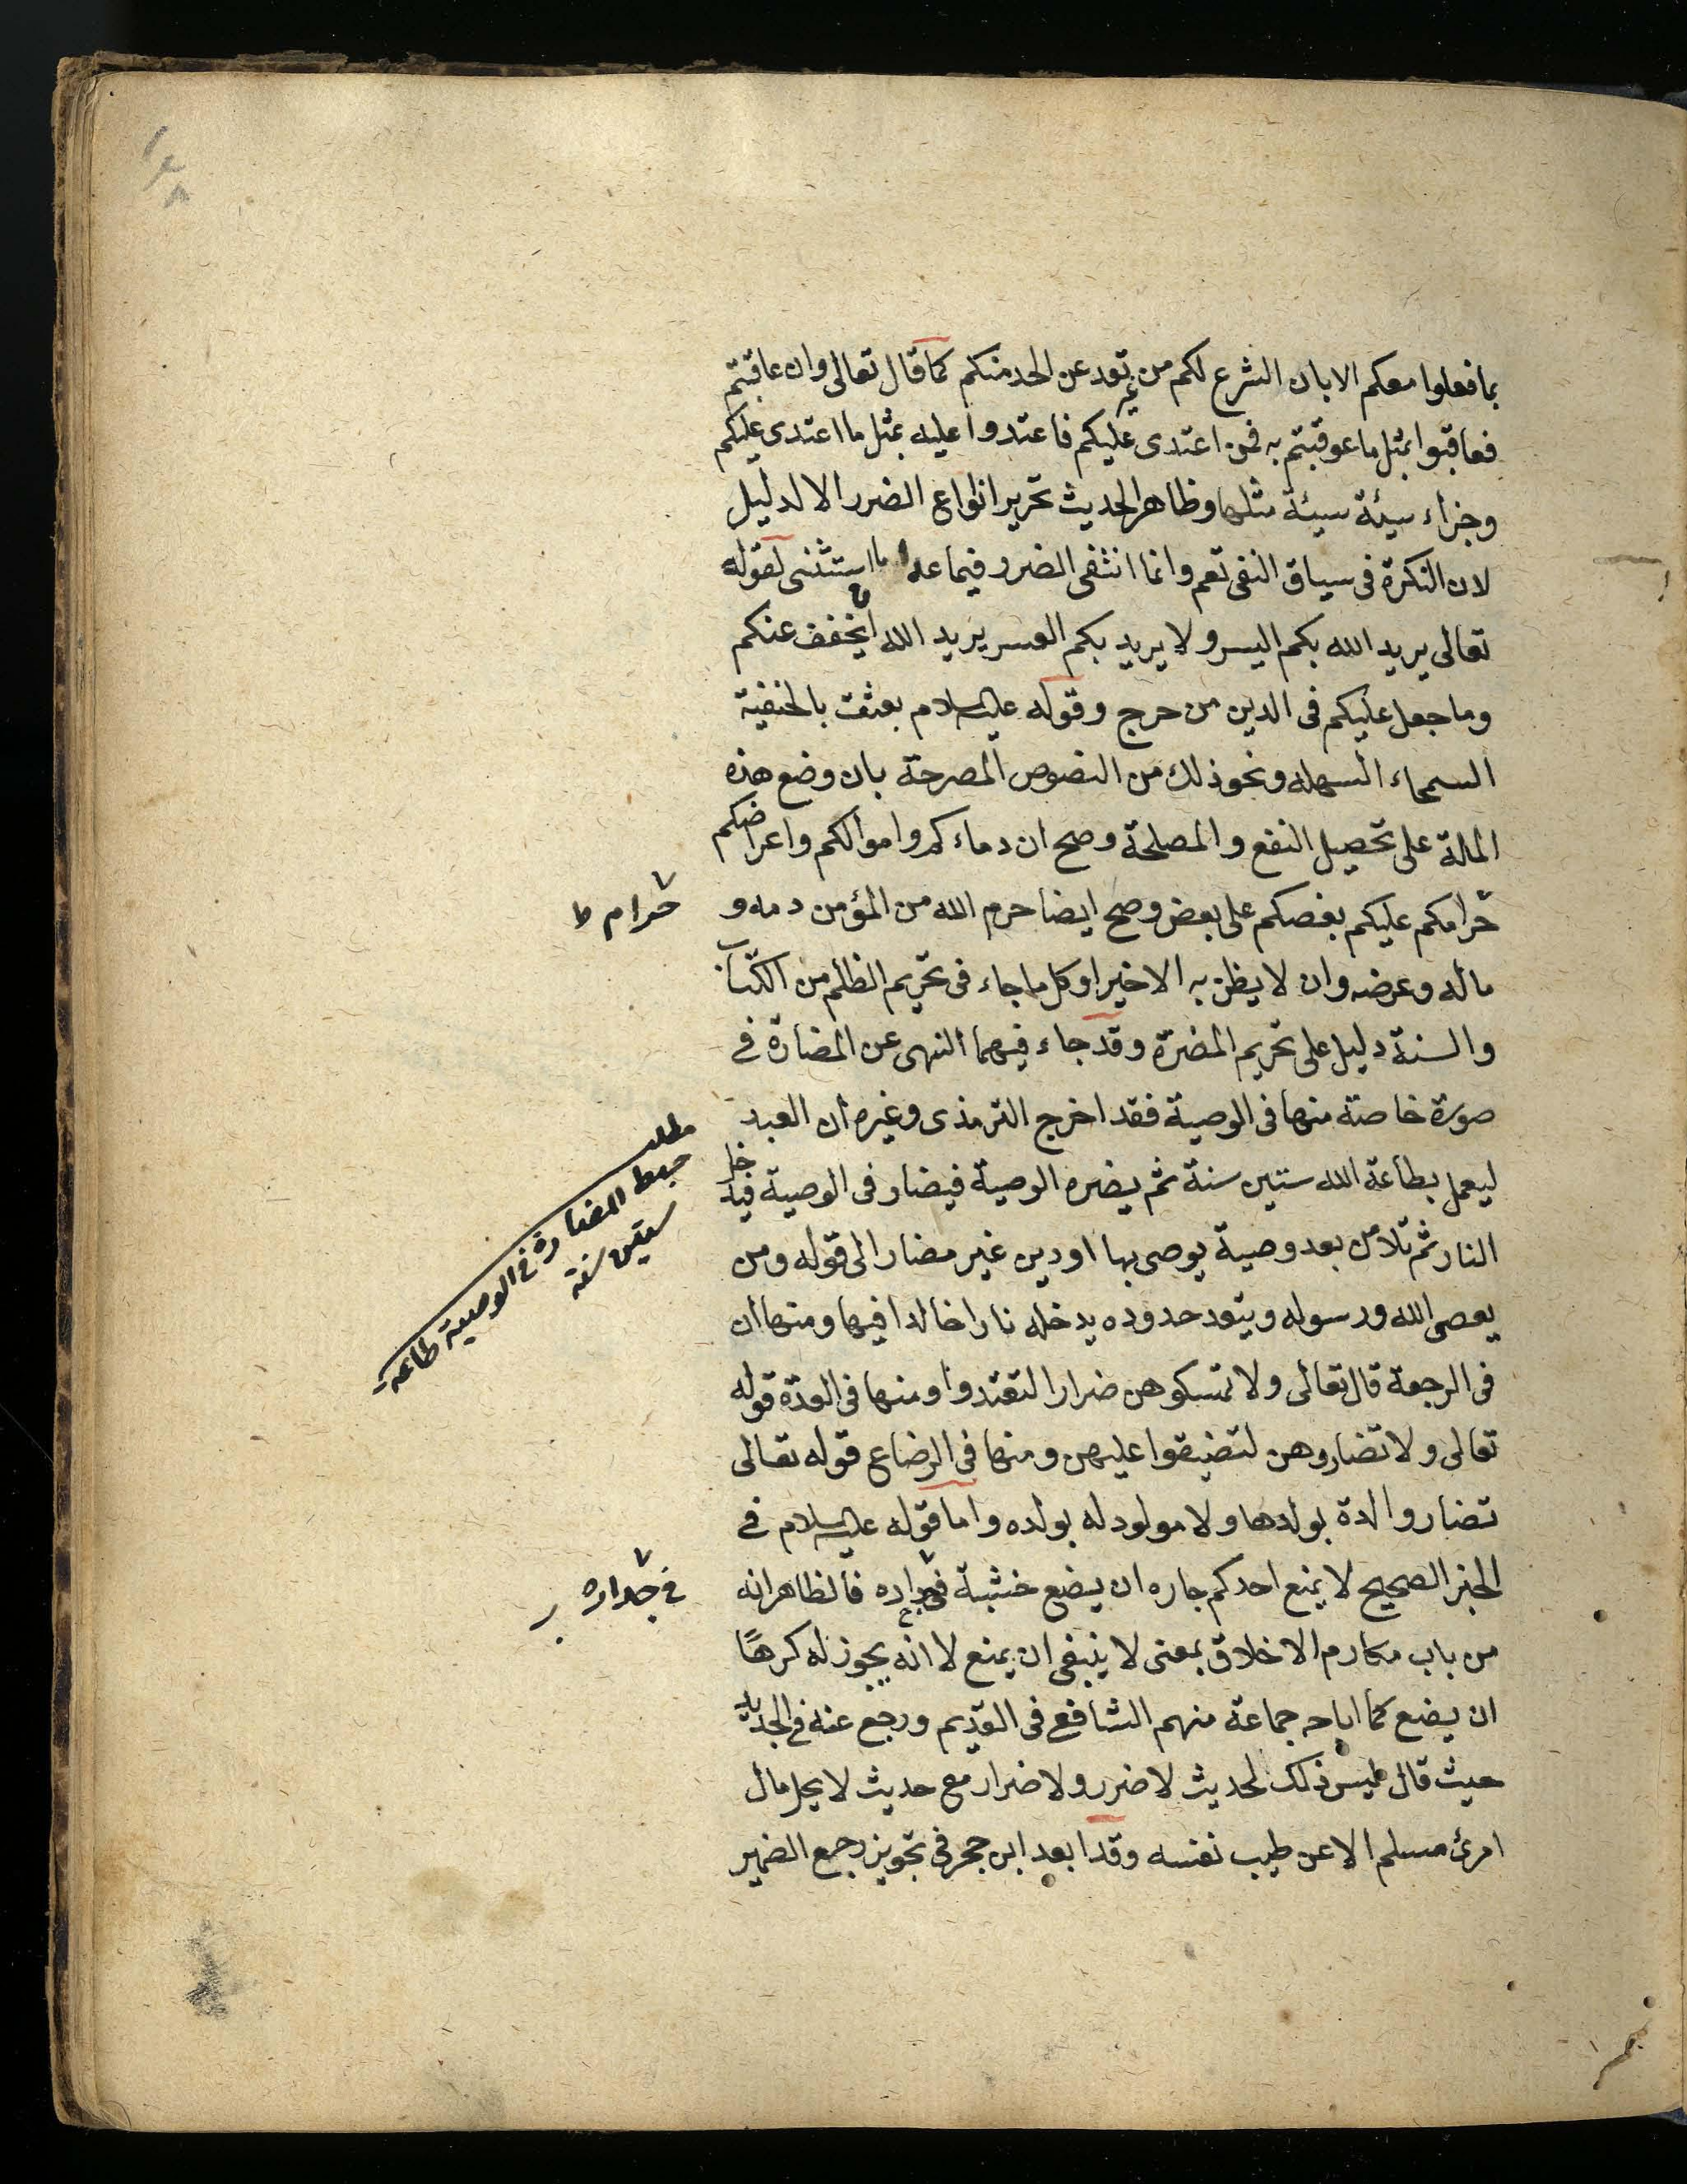 بما فعلوا معكم الا بان الشرع لكم من تعد عن الحد منكم كما قال تعالى وان عاقبتم
فعاقبوا بمثل ما عوقبتم به فمن اعتدى عليكم فاعتدوا عليه بمثل ما اعتدى عليكم
وجزاء سيئة سيئة مثلها وظاهر الحديث تحرير انواع الضرر الا لدليل
لان النكرة فى سياق النفى تعم وانما انتفى الضرر فيما عدا ما استثنى لقوله
تعالى يريد الله بكم اليسر ولا يريد بكم العسر يريد الله ان يخفف عنكم
وما جعل عليكم فى الدين من حرج وقوله عليه السلام بعثت بالحنفية
السمحاء السهله ونحو ذلك من النصوص المصرحة بان وضع هذه
الملة على تحصيل النفع والمصلحة وصح ان دماءكم واموالكم واعراضكم
حرامكم عليكم بعضكم على بعض وصح ايضا حرم الله من المؤمن دمه و
حرام ط
ماله وعرضه وان لا يظن به الا خيرا وكل ما جاء فى تحريم الظلم من الكتاب
والسنة دليل على تحريم المضرة وقد جاء فيهما النهى عن المضارة فى
صورة خاصة منها فى الوصية فقد اخرج الترمذى وغيره ان العبد
ليعمل بطاعة الله ستين سنة ثم يضره الوصية فيضار فى الوصية فيدخل
مطلب
حبط المضارة فى الوصية طاعة
ستين سنة
النار ثم تلا من بعد وصية يوصى بها او دين غير مضار الى قوله ومن
يعصى الله ورسوله ويتعد حدوده يدخله نارا خالدا فيها ومنها ان
فى الرجعة قال تعالى ولا تمسكوهن ضرارا لتعتدوا ومنها فى العدة قوله
تعالى ولا تضاروهن لتضيقوا عليهن ومنها فى الرضاع قوله تعالى
تضار والدة بولدها ولا مولود له بولده واما قوله عليه السلام فى
الخبر الصحيح لا يمنع احدكم جاره ان يضع خشبة فى جداره فالظاهر انه
فى جداره
من باب مكارم الاخلاق بمعنى لا ينبغى ان يمنع لا انه يجوز له كرهًا
ان يضع كما اباحه جماعة منهم الشافع فى القديم ورجع عنه فى الجديد
حيث قال ليس ذلك لحديث لا ضرر ولا ضرار مع حديث لا يحل مال
امرئ مسلم الا عن طيب نفسه وقد ابعد ابن حجر فى تجويز رجع الضمير